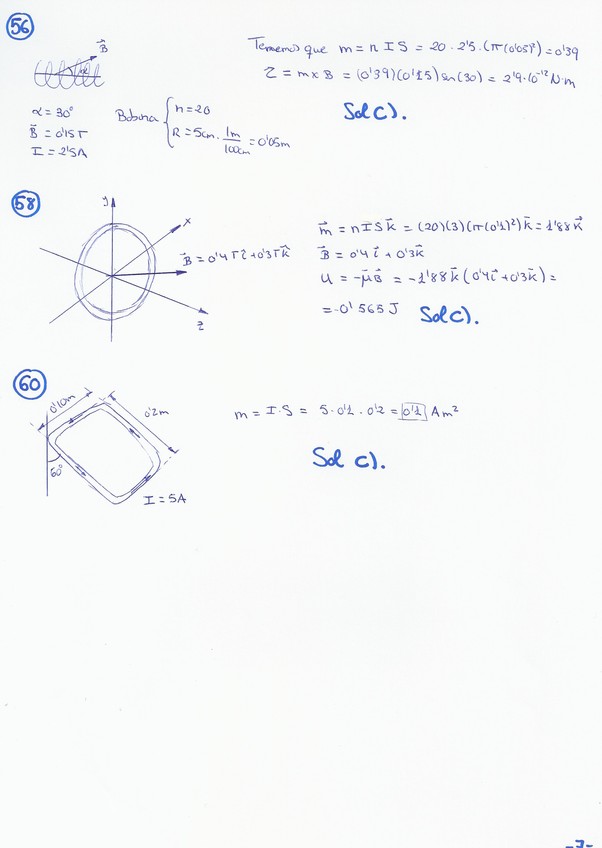 56
B⃗
α
Tenemos que m = n I S = 20 · 2'5 · (π(0'05)²) = 0'39
τ = m x B = (0'39)(0'15) sen(30) = 2'9·10⁻¹² N·m
α = 30°
B⃗ = 0'15 T
I = 2'5A
Bobina { n = 20
R = 5cm · 1m/100cm = 0'05m
Sol C).
58
y
x
B⃗ = 0'4 T i⃗ + 0'3 T k⃗
z
m⃗ = n I S k⃗ = (20)(3)(π(0'1)²) k⃗ = 1'88 k⃗
B⃗ = 0'4 i⃗ + 0'3 k⃗
U = -μ⃗ B⃗ = -1'88 k⃗ (0'4 i⃗ + 0'3 k⃗) =
= -0'565 J
Sol C).
60
0'10m
0'2m
60°
I = 5A
m = I · S = 5 · 0'1 · 0'2 = 0'1 Am²
Sol C).
-7-